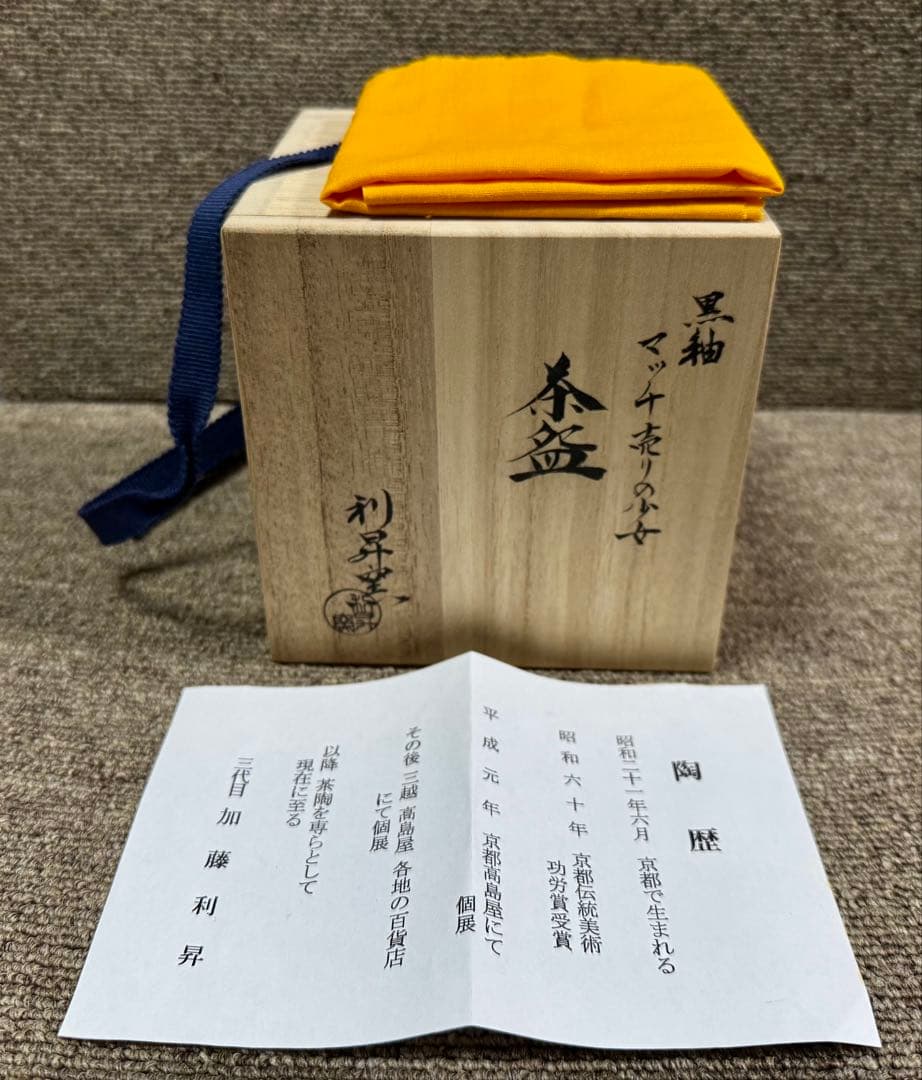 黒釉
マッチ売りの少女
茶盌
利昇窯
陶歴
昭和二十一年六月 京都で生まれる
昭和六十年 京都伝統美術
功労賞受賞
平成元年 京都高島屋にて
個展
その後 三越 高島屋 各地の百貨店
にて個展
以降 茶陶を専らとして
現在に至る
三代目 加藤利昇